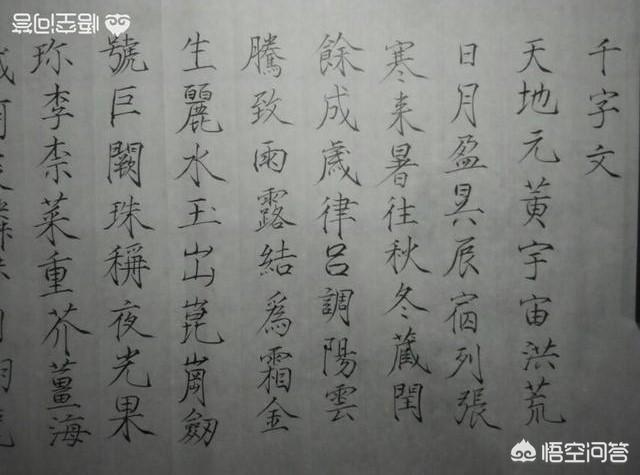 千字文
天地元黃宇宙洪荒
日月盈昃辰宿列張
寒来暑往秋冬藏閏
餘成歲律呂調陽雲
騰致雨露結為霜金
生麗水玉出崑崗劔
號巨闕珠稱夜光果
珍李柰菜重芥薑海
悟空问答